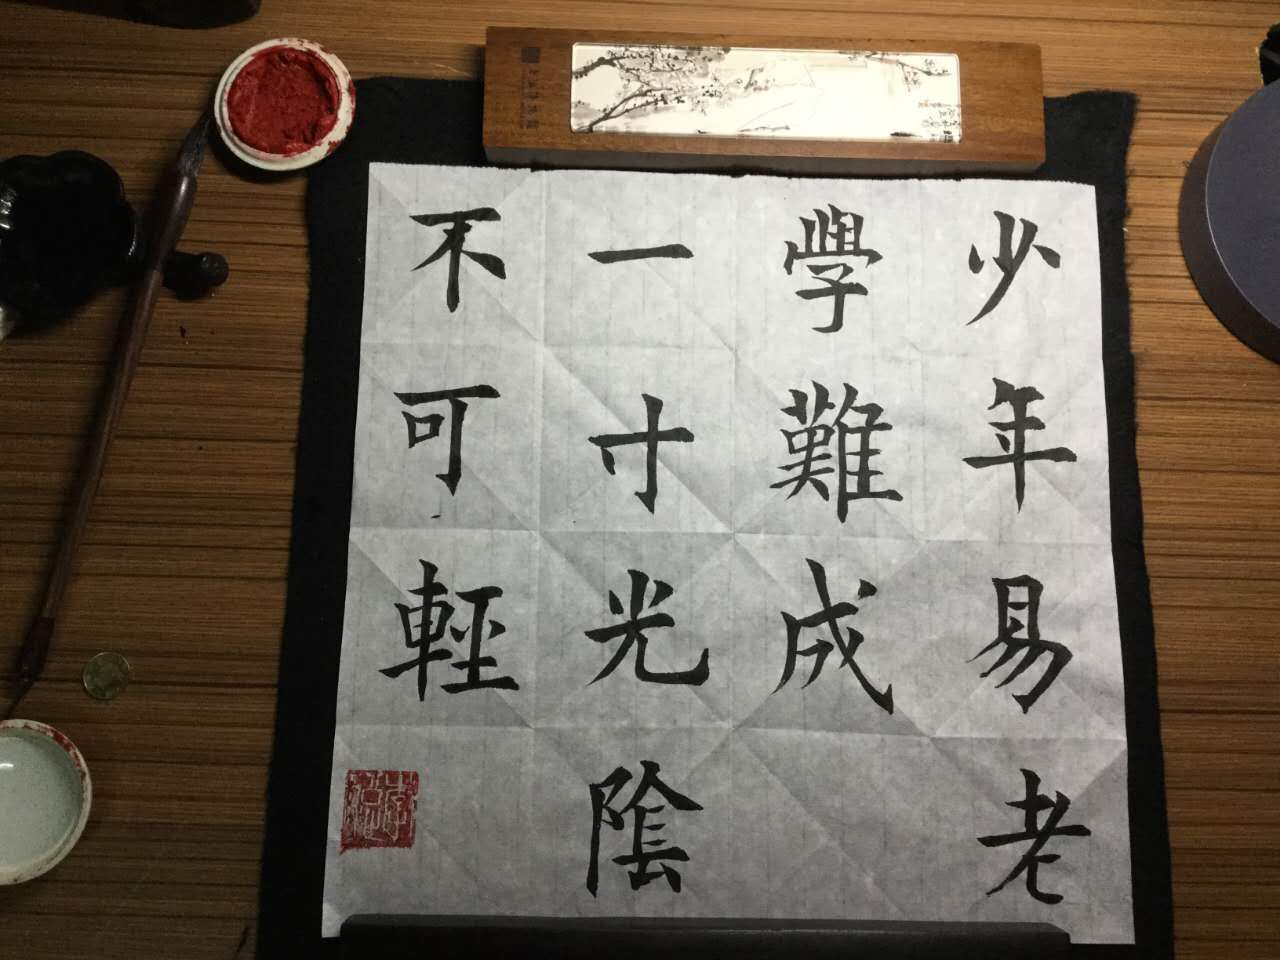 少年易老
學難成
一寸光陰
不可輕